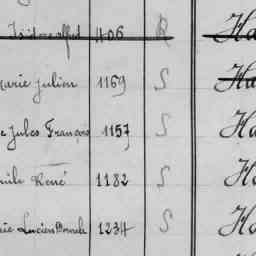 Isidore Alfred 406 R Ha
Marie Julien 1169 S Ha
e Jules François 1157 S Ha
mile René 1182 S Ha
rie Lucien 1234 S Ha